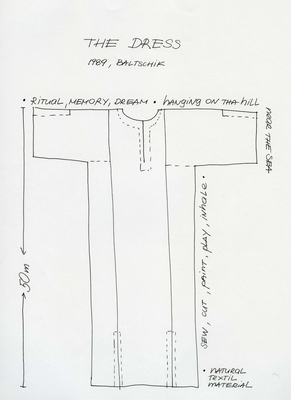 THE DRESS
1989, BALTSCHIK
• RITUAL, MEMORY, DREAM • hANGING ON ThA hill
NEAR THE SEA
50m
SEW, CUT, PAINT, PLAY, inhale •
• NATURAL
TEXTIL
MATERIAL